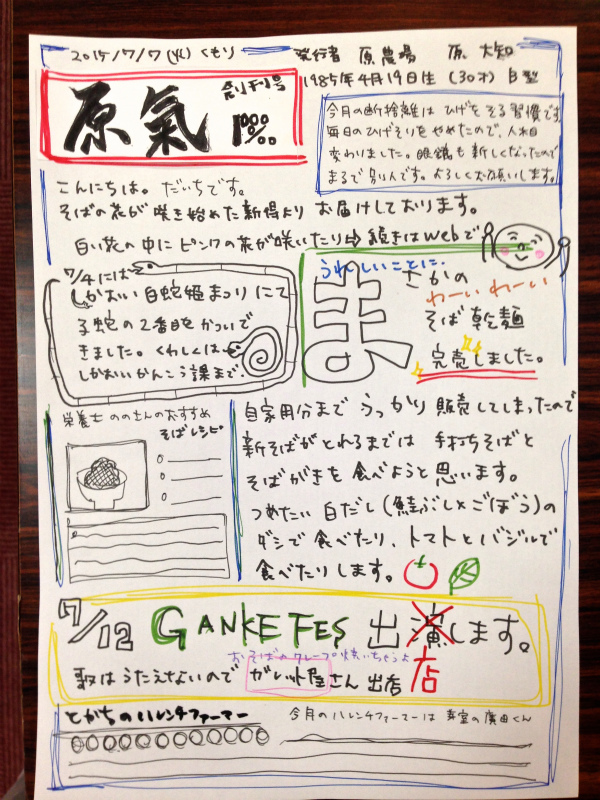 2015/7/7(火) くもり 発行者 原農場 原 大知
1985年4月19日生 (30才) B型
原氣
創刊号
100%
今月の断捨離は ひげをそる習慣です
毎日のひげそりをやめたので、人相
変わりました。眼鏡も新しくなったので
まるで別人です。よろしくお願いします。
こんにちは。だいちです。
そばの花が咲き始めた新得より お届けしております。
白い花の中に ピンクの花が咲いたり⇨続きはwebで
7/4には
しかおい 白蛇姫まつり にて
子蛇の2番目をかついで
きました。くわしくは
しかおいかんこう課まで。
うれしいことに、
まさかの
わーい わーい
そば 乾麺
完売しました。
栄養士 ののさんのおすすめ
そばレシピ
自家用分まで うっかり 販売してしまったので
新そばがとれるまでは 手打ちそばと
そばがきを 食べようと思います。
つめたい 白だし(鮭ぶしとごぼう)の
ダシで 食べたり、トマトとバジルで
食べたりします。
7/12 GANKE FES 出演します。
店
おそばのクレープ焼いちゃうよ
歌はうたえないので ガレット屋さん 出店
とかちのハレンチファーマー
今月のハレンチファーマーは 芽室の廣田くん